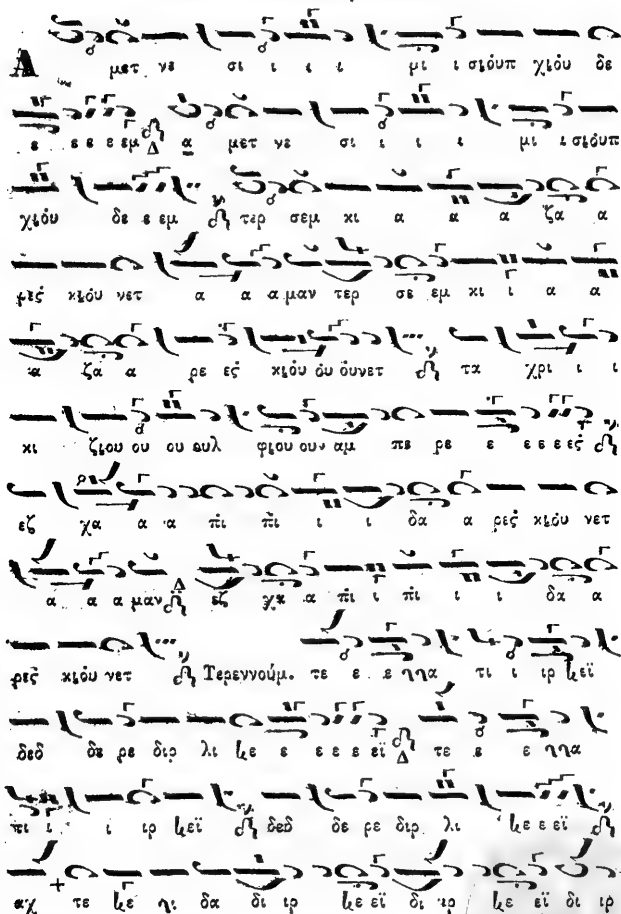 Α μετ νε σι ι ι ι μι ι σιόυπ χιόυ δε
ε ε ε ε εμ Δ α μετ νε σι ι ι ι μι ι σιόυπ
χιόυ δε ε εμ τερ σεμ κι α α α ζα α
ρες κιόυ νετ α α α μαν τερ σε εμ κι ι α α
α ζα α ρε ες κιόυ ου ουνετ τα χρι ι ι
κι ζιου ου ου ουλ φιου ουν αμ πε ρε ε ε ε ε ες
εζ χα α α πι πι ι ι δα α ρες κιόυ νετ
α α α μαν Δ εζ χα α πι ι πι ι ι δα α
ρες κιόυ νετ Τερεννούμ. τε ε ε ηηα τι ι ιρ κεϊ
δεδ δε ρε διρ λι κε ε ε ε ε εϊ Δ τε ε ε ηηα
πι ι ι ι ιρ κεϊ δεδ δε ρε διρ λι κε ε εϊ
αχ τε κε ηι δα δι ιρ κε εϊ δι ιρ κε εϊ δι ιρ